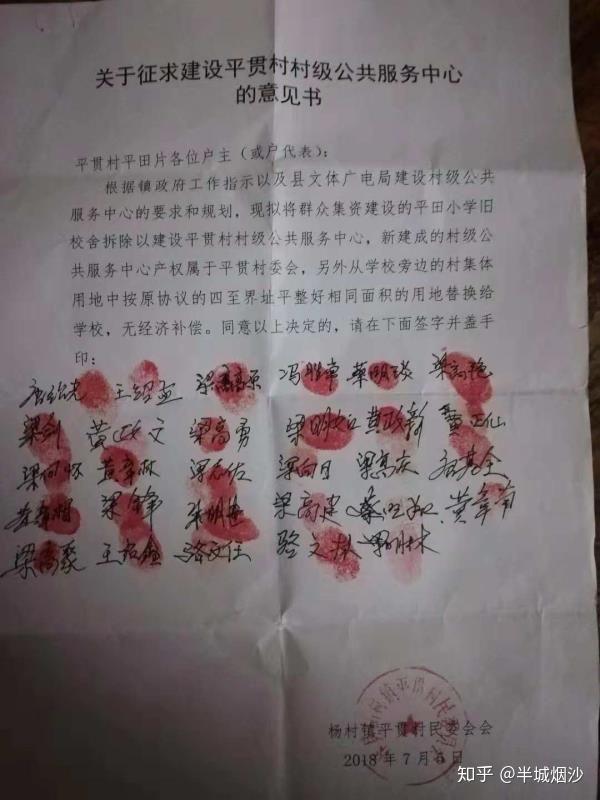 关于征求建设平贯村村级公共服务中心
的意见书
平贯村平田片各位户主（或户代表）：
根据镇政府工作指示以及县文体广电局建设村级公共
服务中心的要求和规划，现拟将群众集资建设的平田小学旧
校舍拆除以建设平贯村村级公共服务中心，新建成的村级公
共服务中心产权属于平贯村委会，另外从学校旁边的村集体
用地中按原协议的四至界址平整好相同面积的用地替换给
学校，无经济补偿。同意以上决定的，请在下面签字并盖手
印：
王绍孟 冯胜章 蔡明琰 梁高艳
梁剑 黄正文 梁高勇 黄政新 黄正仙
黄章林 梁志佐 梁向日 梁高庆
梁锋 梁高建 黄章南
梁高聚 骆文任 骆文林
杨村镇平贯村民委会会
2018 年 7 月 5 日
知乎 @半城烟沙